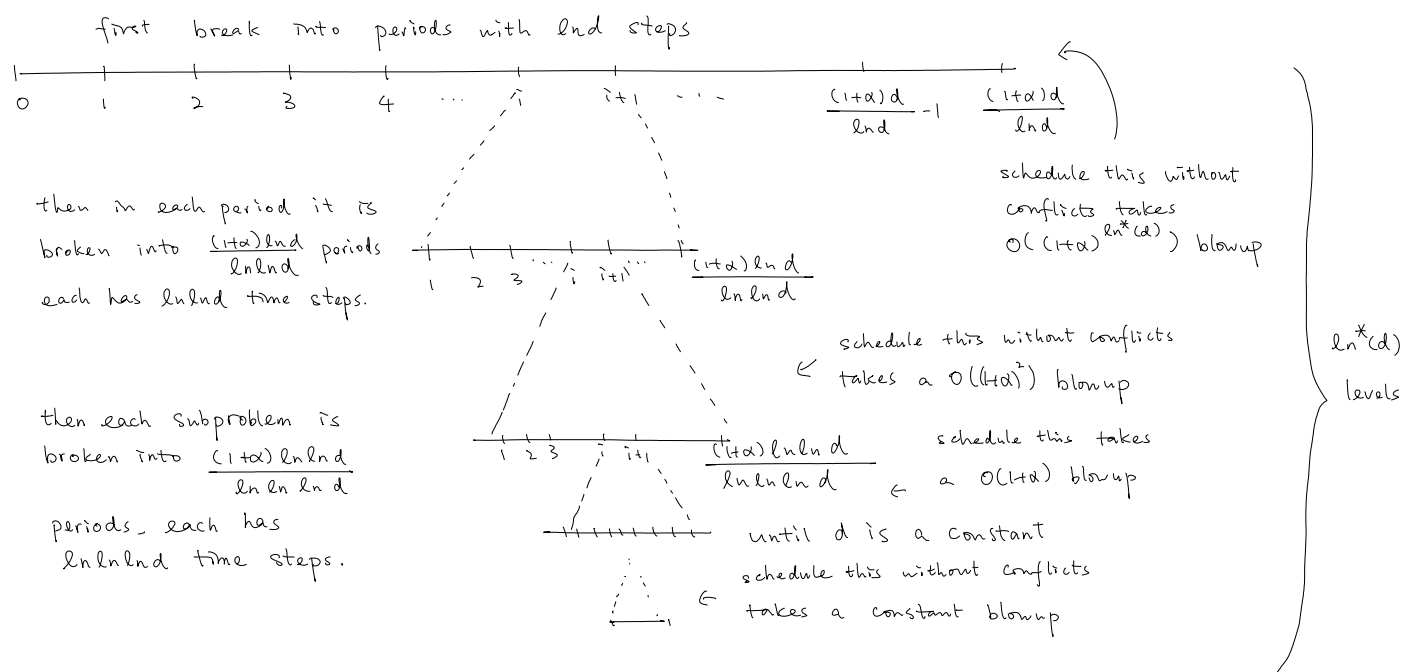 first break into periods with lnd steps
0 1 2 3 4 ... i i+1 ... (1+α)d/lnd -1 (1+α)d/lnd
schedule this without
conflicts takes
O((1+α)^ln*(d)) blowup
then in each period it is
broken into (1+α)lnd/lnlnd periods
each has lnlnd time steps.
1 2 3 ... i i+1 ... (1+α)ln d/ln ln d
schedule this without conflicts
takes a O((1+α)^2) blowup
ln*(d)
levels
then each subproblem is
broken into (1+α)lnlnd/ln ln ln d
periods, each has
lnlnlnd time steps.
1 2 3 i i+1 (1+α)lnln d/ln ln ln d
schedule this takes
a O(1+α) blowup
until d is a constant
schedule this without conflicts
takes a constant blowup